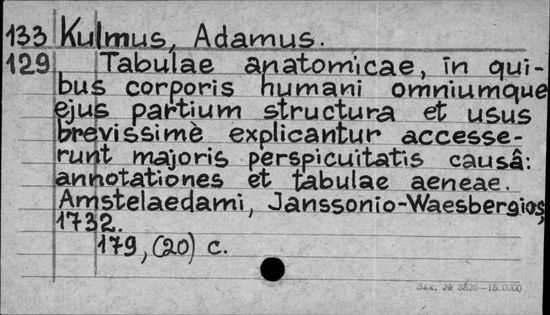 133 Kulmus, Adamus.
129 Tabulae anatomicae, in qui-
bus corporis humani omniumque
ejus partium structura et usus
brevissimè explicantur accesse-
runt majoris perspicuitatis causâ:
annotationes et tabulae aeneae.
Amstelaedami, Janssonio-Waesbergios,
1732.
179, (20) c.
Зак. № 3826—15.0000